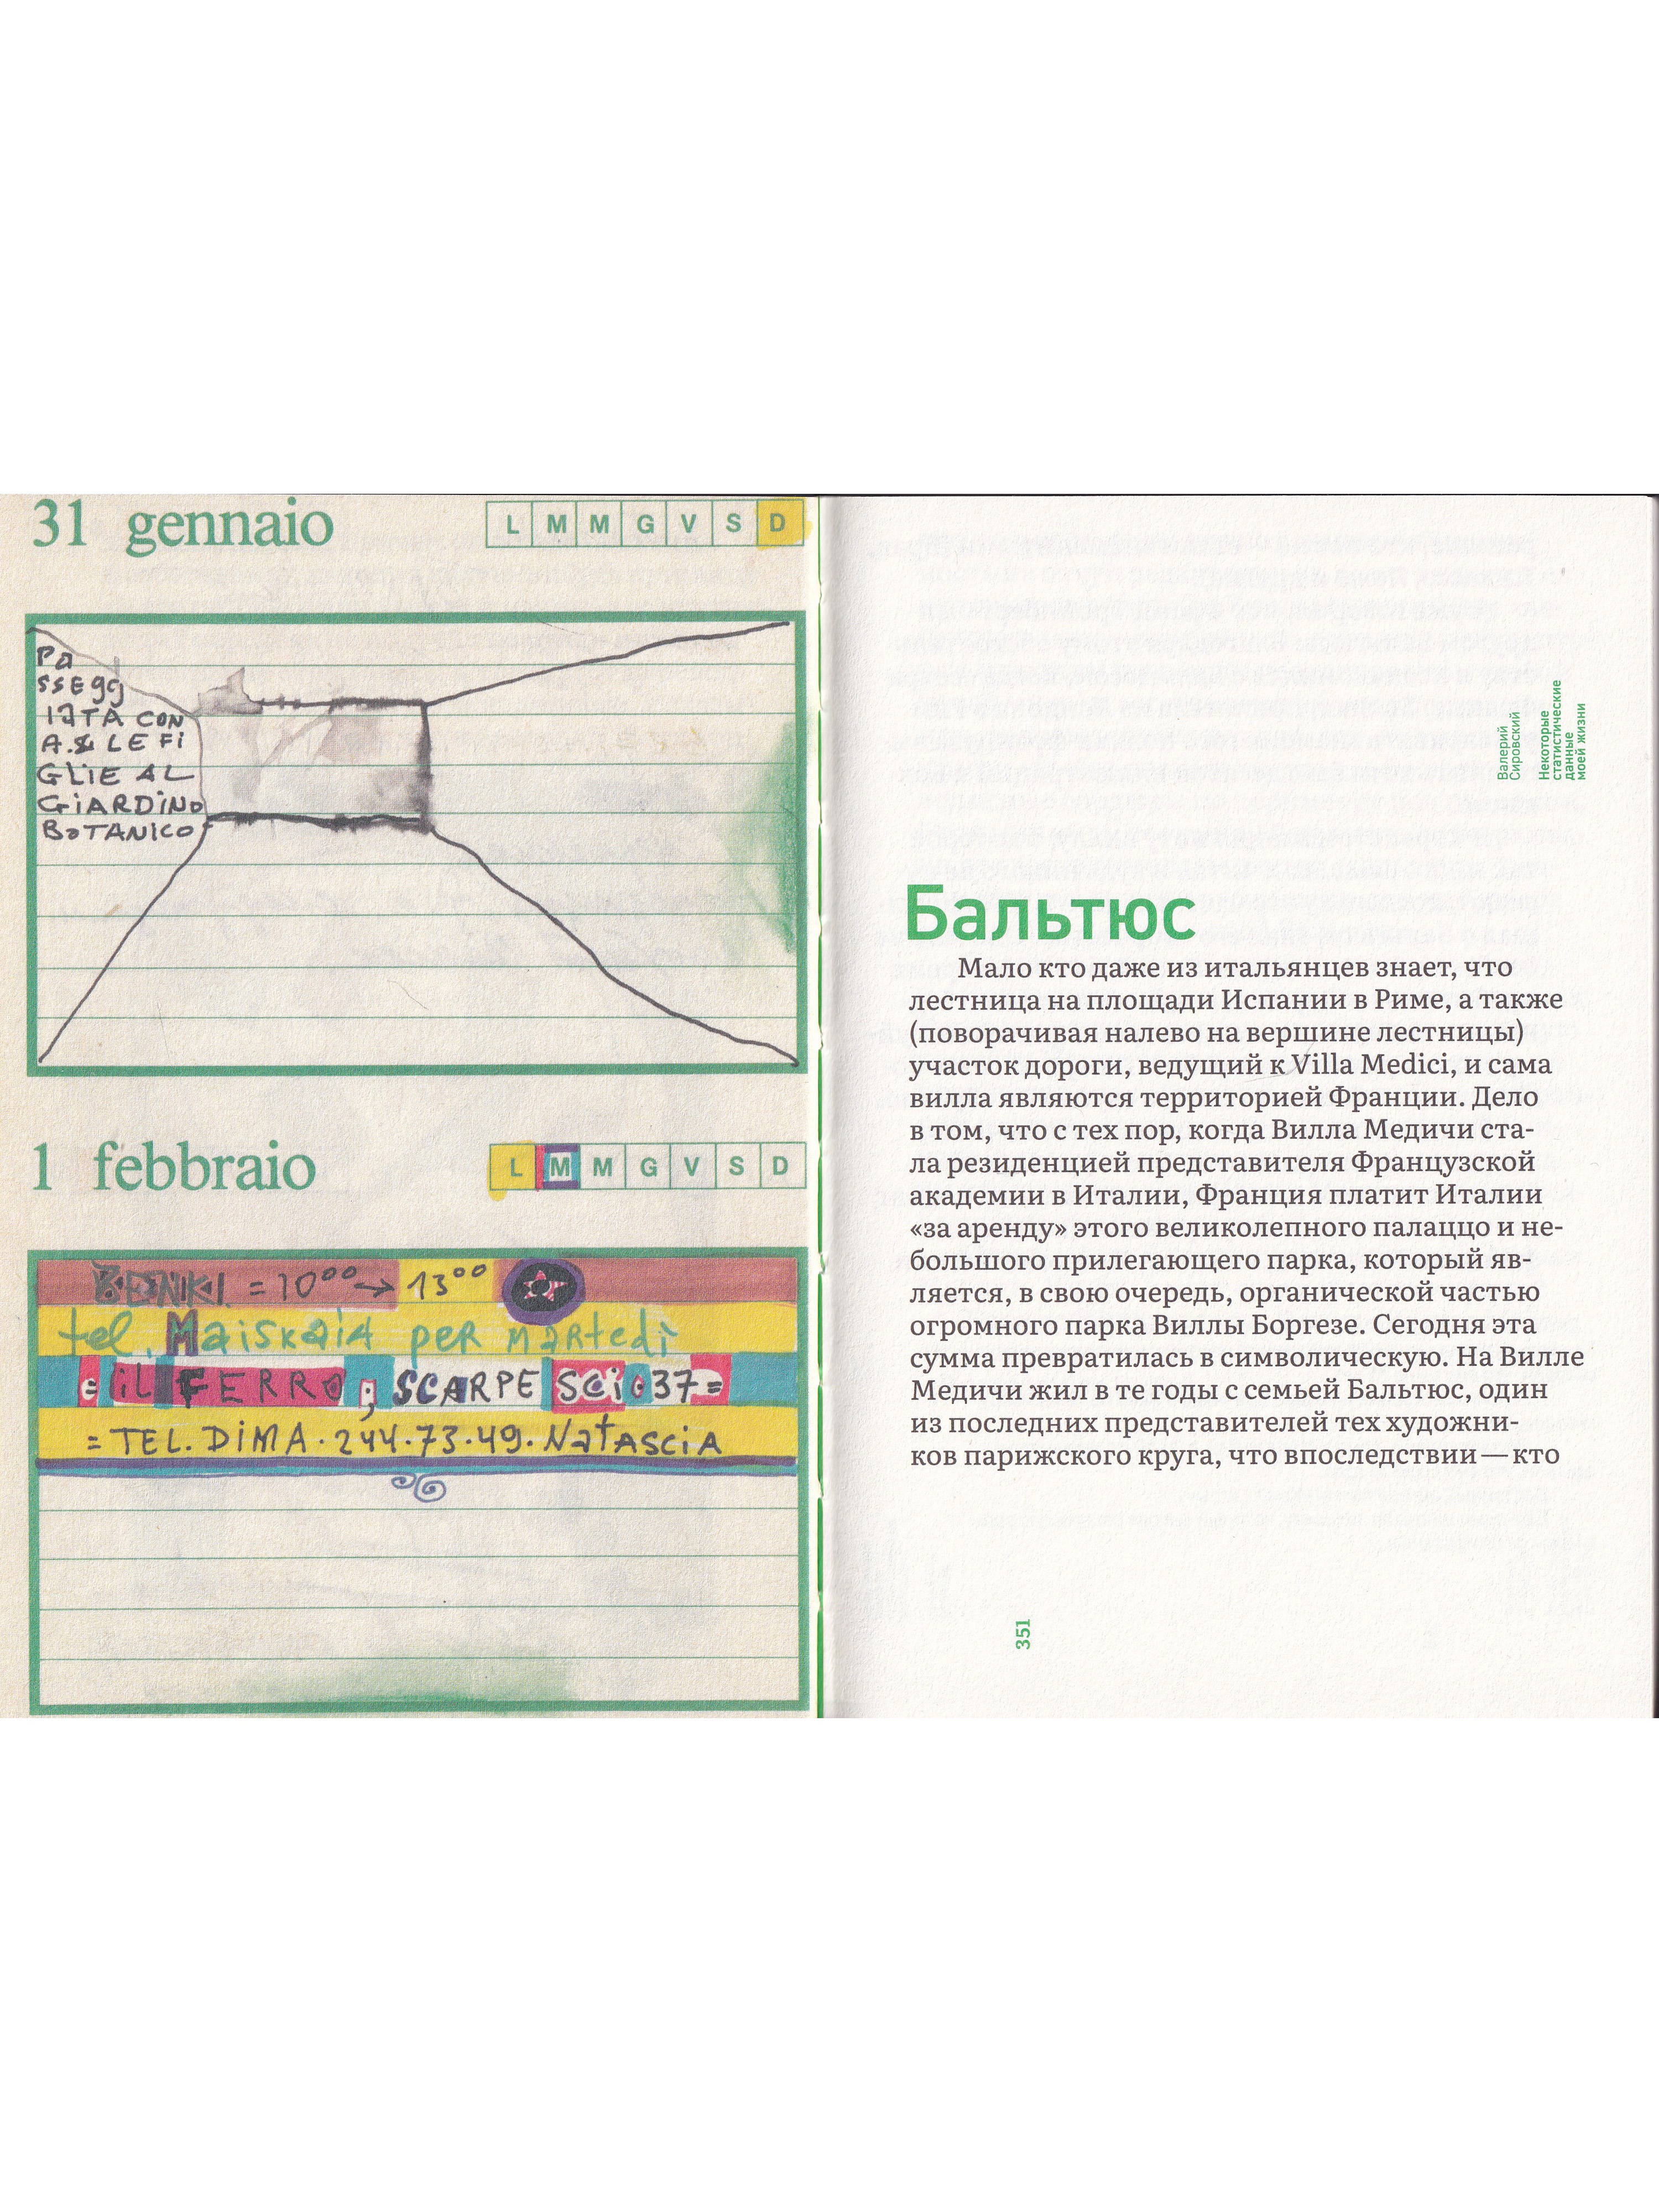 31 gennaio
L M M G V S D
Pa
SSEgg
IATA CON
A. & LE Fi
GLiE AL
GiARDiNO
BOTANICO
1 febbraio
L M M G V S D
BENKI. = 10⁰⁰ → 13⁰⁰
tel. Maiskaia per martedì
= iL FERRO; SCARPE SCi • 37 =
= TEL. DiMA · 244·73·49. NatASCiA
Валерий
Сировский
Некоторые
статистические
данные
моей жизни
Бальтюс
Мало кто даже из итальянцев знает, что
лестница на площади Испании в Риме, а также
(поворачивая налево на вершине лестницы)
участок дороги, ведущий к Villa Medici, и сама
вилла являются территорией Франции. Дело
в том, что с тех пор, когда Вилла Медичи ста-
ла резиденцией представителя Французской
академии в Италии, Франция платит Италии
«за аренду» этого великолепного палаццо и не-
большого прилегающего парка, который яв-
ляется, в свою очередь, органической частью
огромного парка Виллы Боргезе. Сегодня эта
сумма превратилась в символическую. На Вилле
Медичи жил в те годы с семьей Бальтюс, один
из последних представителей тех художни-
ков парижского круга, что впоследствии — кто
351